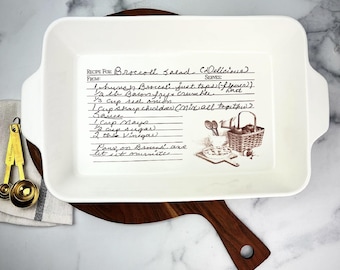 RECIPE FOR: Broccoli Salad (Delicious)
FROM: SERVES:
1 bunch Broccoli just tops (flower)
1/2 lb Bacon fry & crumble
1/2 cup red onion
1 cup sharp cheddar (Mix all together)
Sauce
1 Cup Mayo
cup sugar
2 tbs Vinegar
Pour on Brocoli and
let set overnite